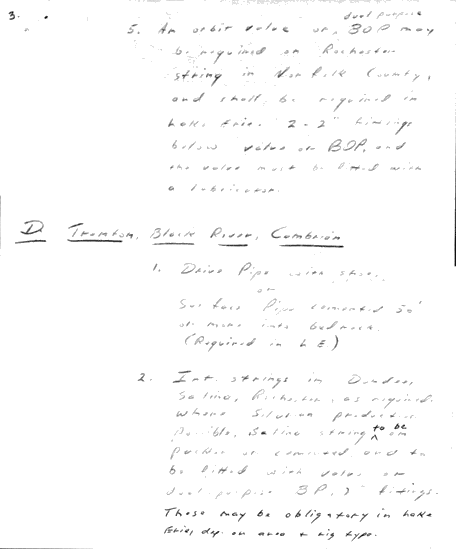 3.
dual purpose
5. An orbit valve or BOP may
be required on Rochester
string in Norfolk County,
and shall be required in
Lake Erie. 2-2" fittings
below valve or BOP, and
the valve must be fitted with
a lubricator.
D Trenton, Black River, Cambrian
1. Drive Pipe with shoe,
or
Surface Pipe cemented 50'
or more into bedrock.
(Required in L E)
2. Int. strings in Dundee,
Salina, Rochester, as required.
Where Salina production
possible, Salina string to be on
packer or cemented, and to
be fitted with valve or
dual purpose BP, 2" fittings.
These may be obligatory in Lake
Erie, dep. on area & rig type.